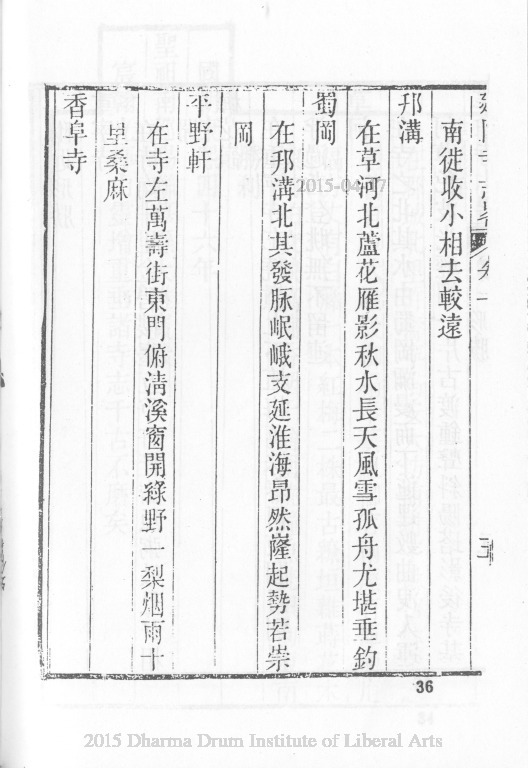 南徙收小相去較遠
邗溝
在草河北蘆花雁影秋水長天風雪孤舟尤堪垂釣
蜀岡
在邗溝北其發脉岷峨支延淮海昂然嶐起勢若崇
岡
平野軒
在寺左萬壽街東門俯清溪窗開綠野一犁烟雨十
里桑麻
香阜寺
36
2015-04-07
2015 Dharma Drum Institute of Liberal Arts